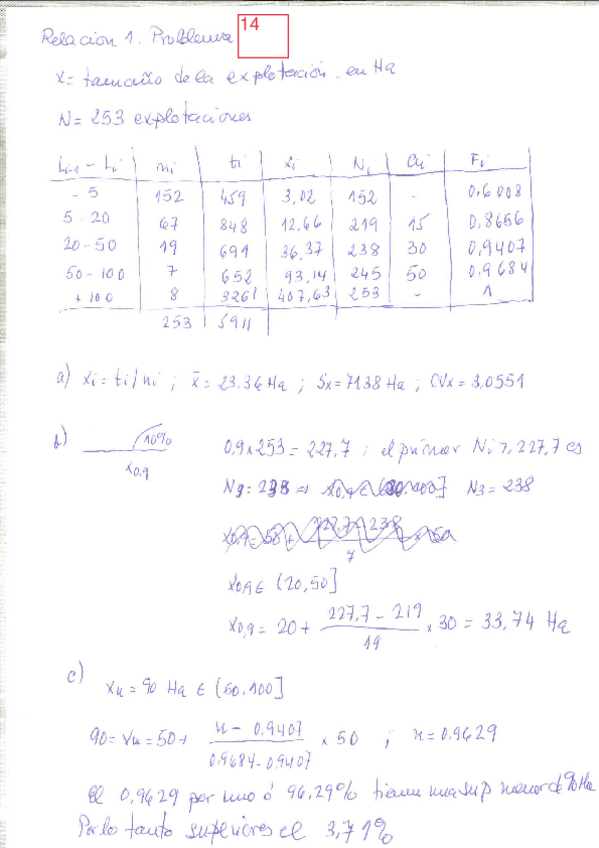 Relación 1. Problema 14
x = tamaño de la explotación en Ha
N = 253 explotaciones
Li-1 - Li ni ti xi Ni ai Fi
- 5 152 459 3,02 152 - 0,6008
5 - 20 67 848 12,66 219 15 0,8656
20 - 50 19 691 36,37 238 30 0,9407
50 - 100 7 652 93,14 245 50 0,9684
+ 100 8 3261 407,63 253 - 1
253 5911
a) xi = ti/ni ; x̄ = 23.36 Ha ; Sx = 71.38 Ha ; CVx = 3,0551
b) 10% x0,9 0,9 x 253 = 227,7 ; el primer Ni > 227,7 es
N3 = 238 => N3 = 238
7
x0,9 ∈ (20,50]
x0,9 = 20 + (227,7 - 219)/19 x 30 = 33,74 Ha
c)
xu = 90 Ha ∈ (50.100]
90 = xu = 50 + (u - 0.9407)/(0.9684 - 0.9407) x 50 ; u = 0,9629
El 0,9629 por uno ó 96,29% tienen una sup menor de 90 Ha
Por lo tanto superiores el 3,71%